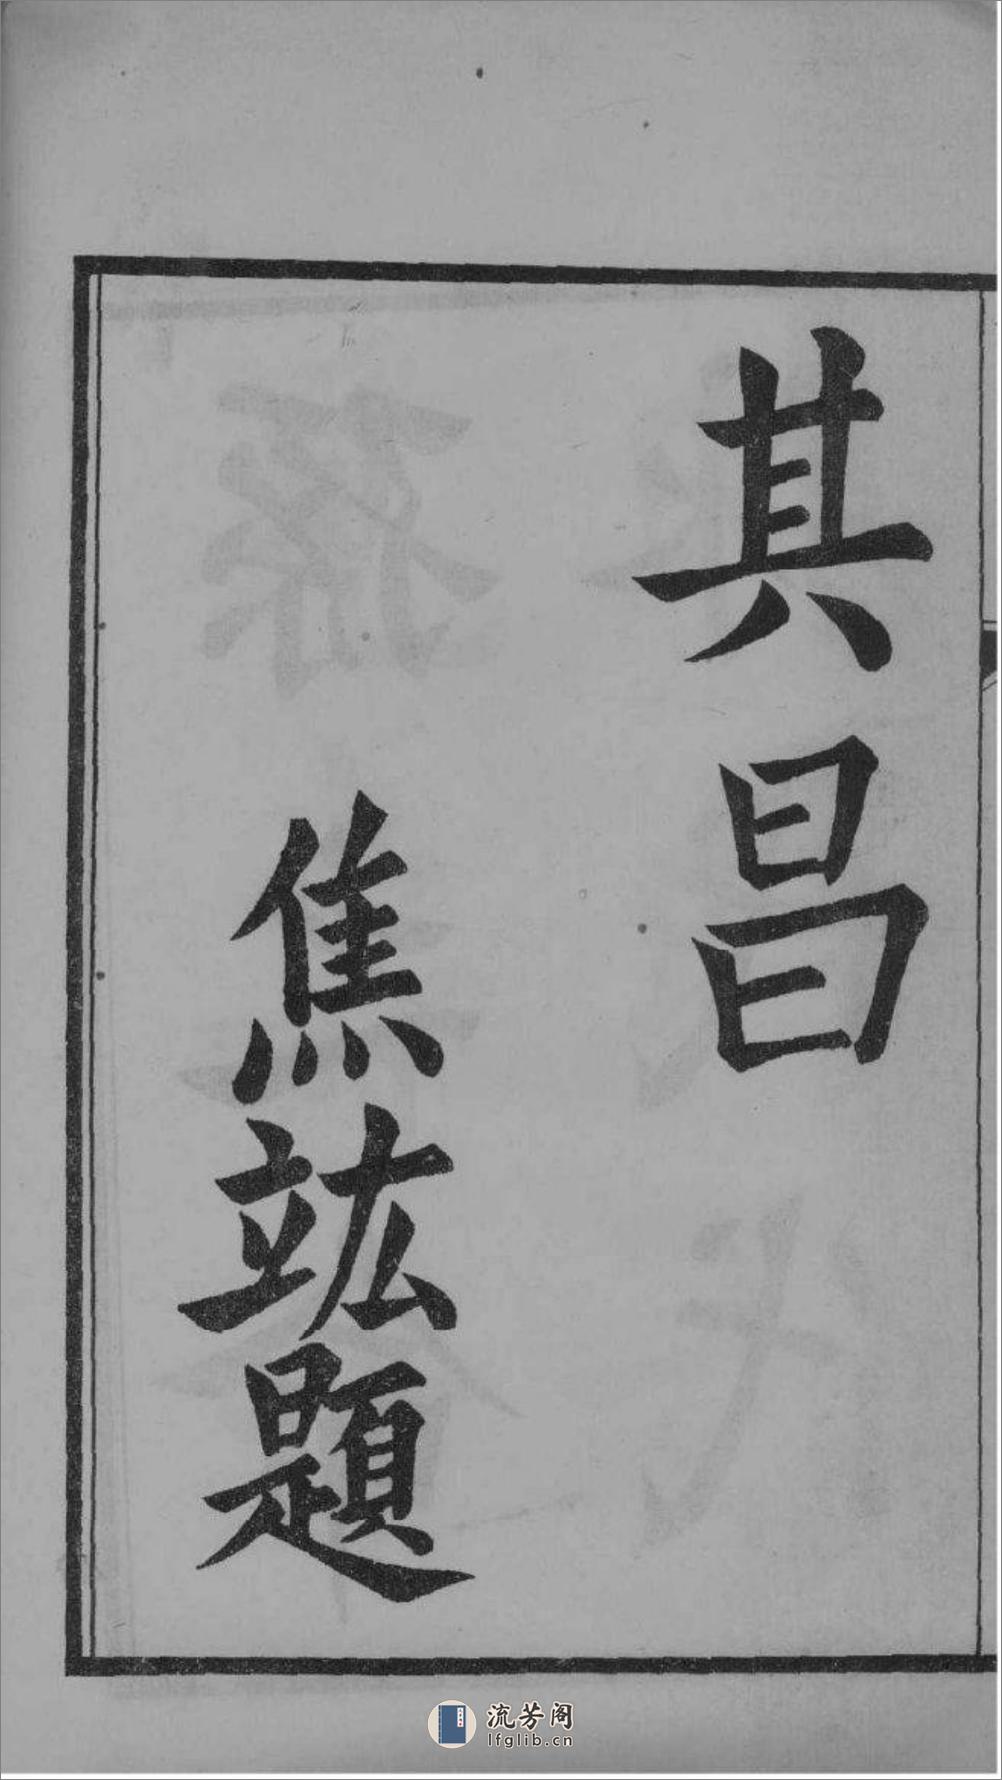 其昌
焦竑題
流芳阁
lfglib.cn